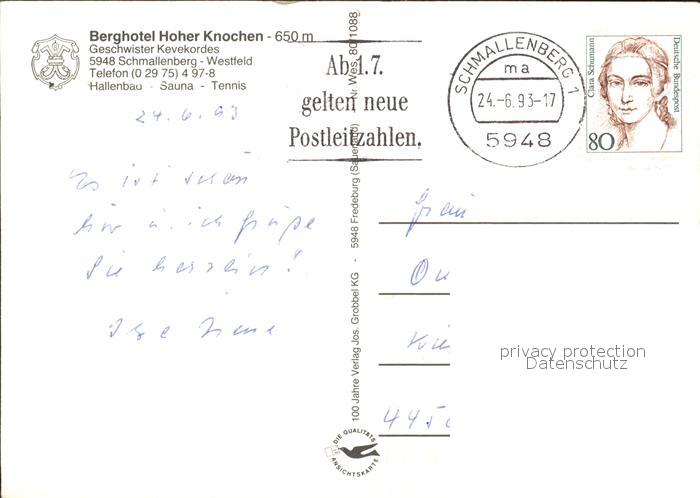 Berghotel Hoher Knochen - 650 m
Geschwister Kevekordes
5948 Schmallenberg - Westfeld
Telefon (0 29 75) 4 97-8
Hallenbad - Sauna - Tennis
24.6.93
Es ist schön
hier u. ich grüße
Sie herzlich!
Ab 1.7.
gelten neue
Postleitzahlen.
SCHMALLENBERG 1
ma
24.-6.93-17
5948
Clara Schumann
Deutsche Bundespost
80
100 Jahre Verlag Jos. Grobbel KG - 5948 Fredeburg (Sauerland) Nr. Wes. 80/1088
Frau
privacy protection
Datenschutz
445
DIE QUALITÄTS
ANSICHTSKARTE